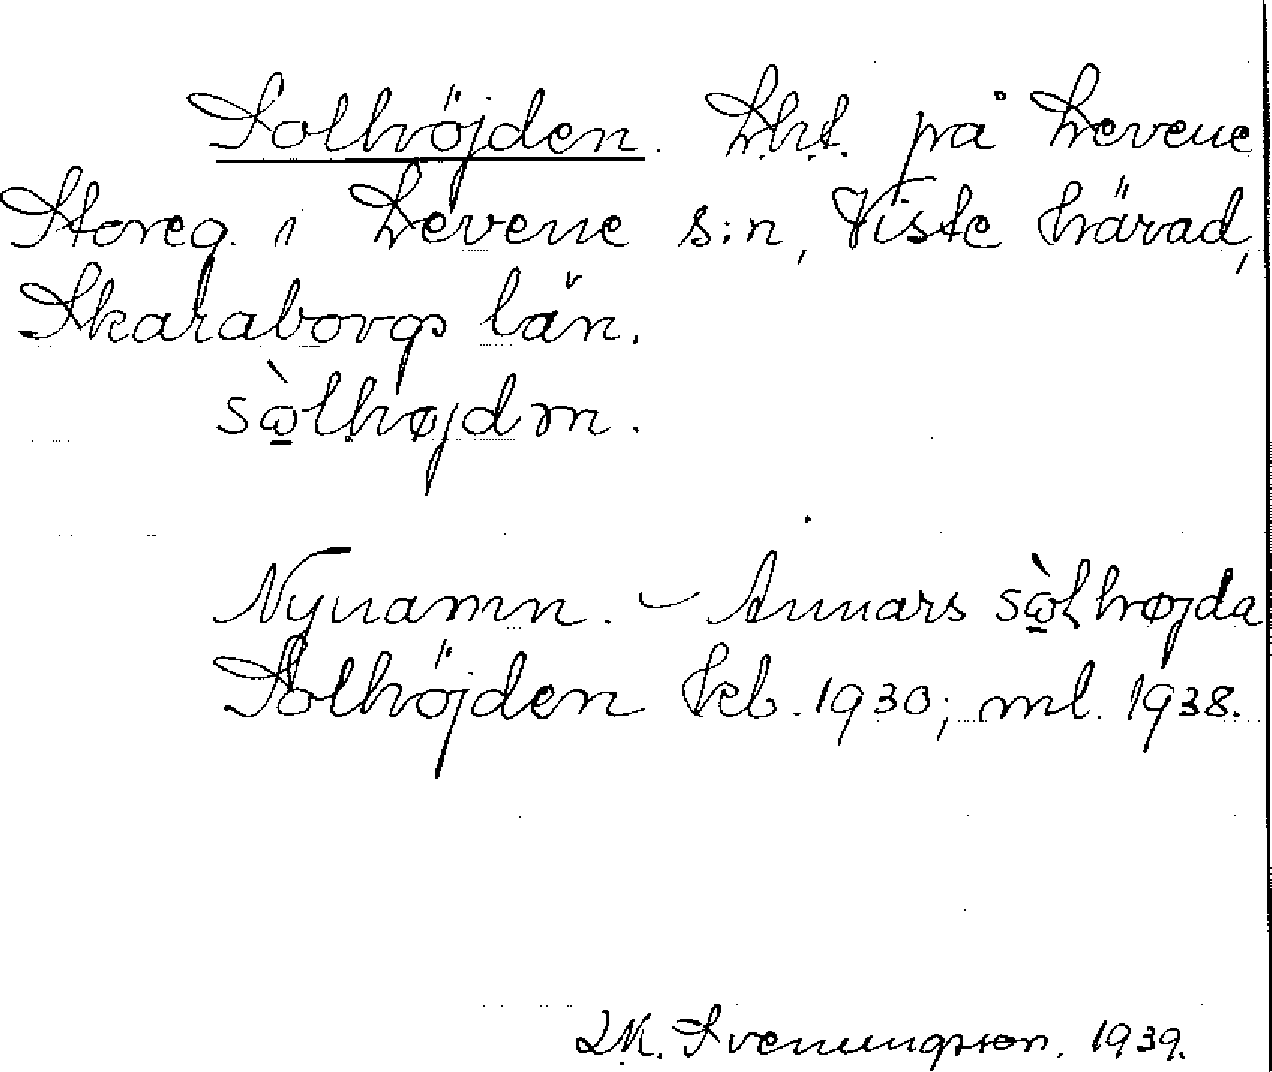 Solhöjden. Lht. på Levene
Storeg. i Levene s:n, Viste härad,
Skaraborgs län.
sò̱lhøjdən.
Nynamn. – Annars sò̱lhøjda
Solhöjden kb. 1930; ml. 1938.
Svenungsson. 1939.